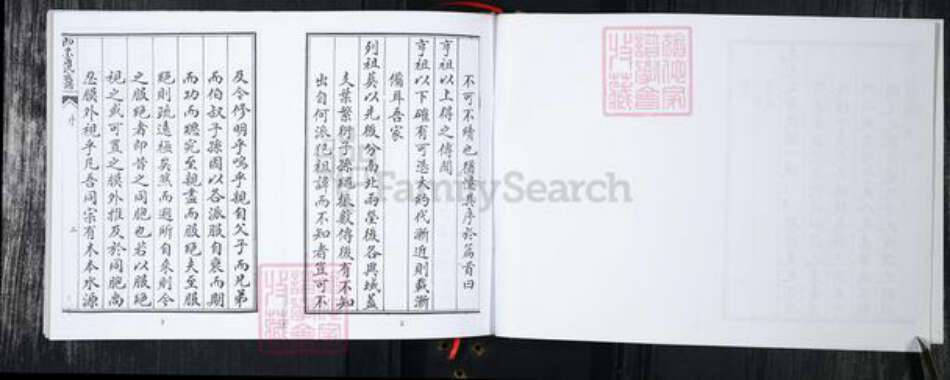 不可不績也猶懂其序於篇首曰
亨祖以上得之傳聞
亨祖以下確有可憑大約代漸近則載漸
備耳吾家
列祖英以先後分南北兩塋後各興域蓋
支葉繁衍子孫蕃振數傳後有不知
出自何派伊祖諱而不知者豈可不
及今修明乎嗚乎親自父子而兄弟
而伯叔子孫固以各派服自衰而期
而功而緦究至親盡而服絕夫至服
絕則疏遠極矣然而遡所自來則今
之服絕者即昔之同胞也若以服絕
視之或可置之膜外推及於同胞尚
忍膜外祖乎凡吾同宗有木本水源
序
二
2
3
FamilySearch